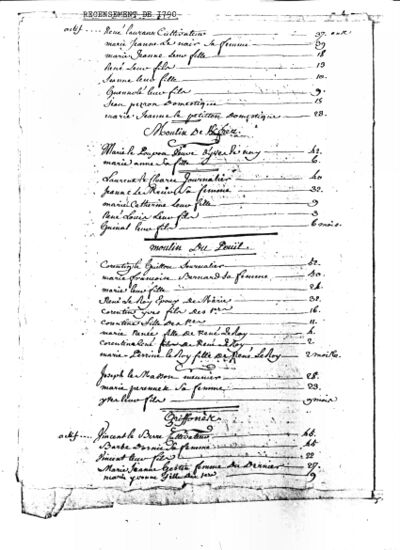 RECENSEMENT DE 1790
actif René laurans Cultivateur 37. ans
marie jeanne le noir Sa femme 39
marie jeanne leur fille 18
René leur fils 13
Jeanne leur fille 10.
Guenolé leur fils 9.
Jean peron Domestique 15
marie Jeanne le petitton domestique 28.
Moulin De
Marie le Veuve 42.
marie anne Sa fille 6.
Laurens le Journalier 40
Jeanne le Sa femme 32.
marie Catherine leur fille 9
René Louis leur fils 3
Guenal leur fils 6 mois.
moulin Du Pouil.
Corentin le Guitton Journalier 52.
marie françoise Bernard Sa femme 50.
marie leur fille 24.
René le Roy Epoux de Marie 32.
Corentin yves fils des 1ers 16.
Corentine fille des 1ers 11.
marie Renée fille de René le Roy 4.
Corentin René fils de René le Roy 2
marie Perrine le Roy fille de René le Roy 2 mois.
Joseph le Masson meunier 28.
marie perennek Sa femme 23.
yves leur fils 9 mois
Griffonès
actif Vincent le Berre Cultivateur 46.
Barbe Sa femme 45
Vincent leur fils 22
Marie Jeanne femme du Dernier 27.
marie yvonne fille des 1ers 9